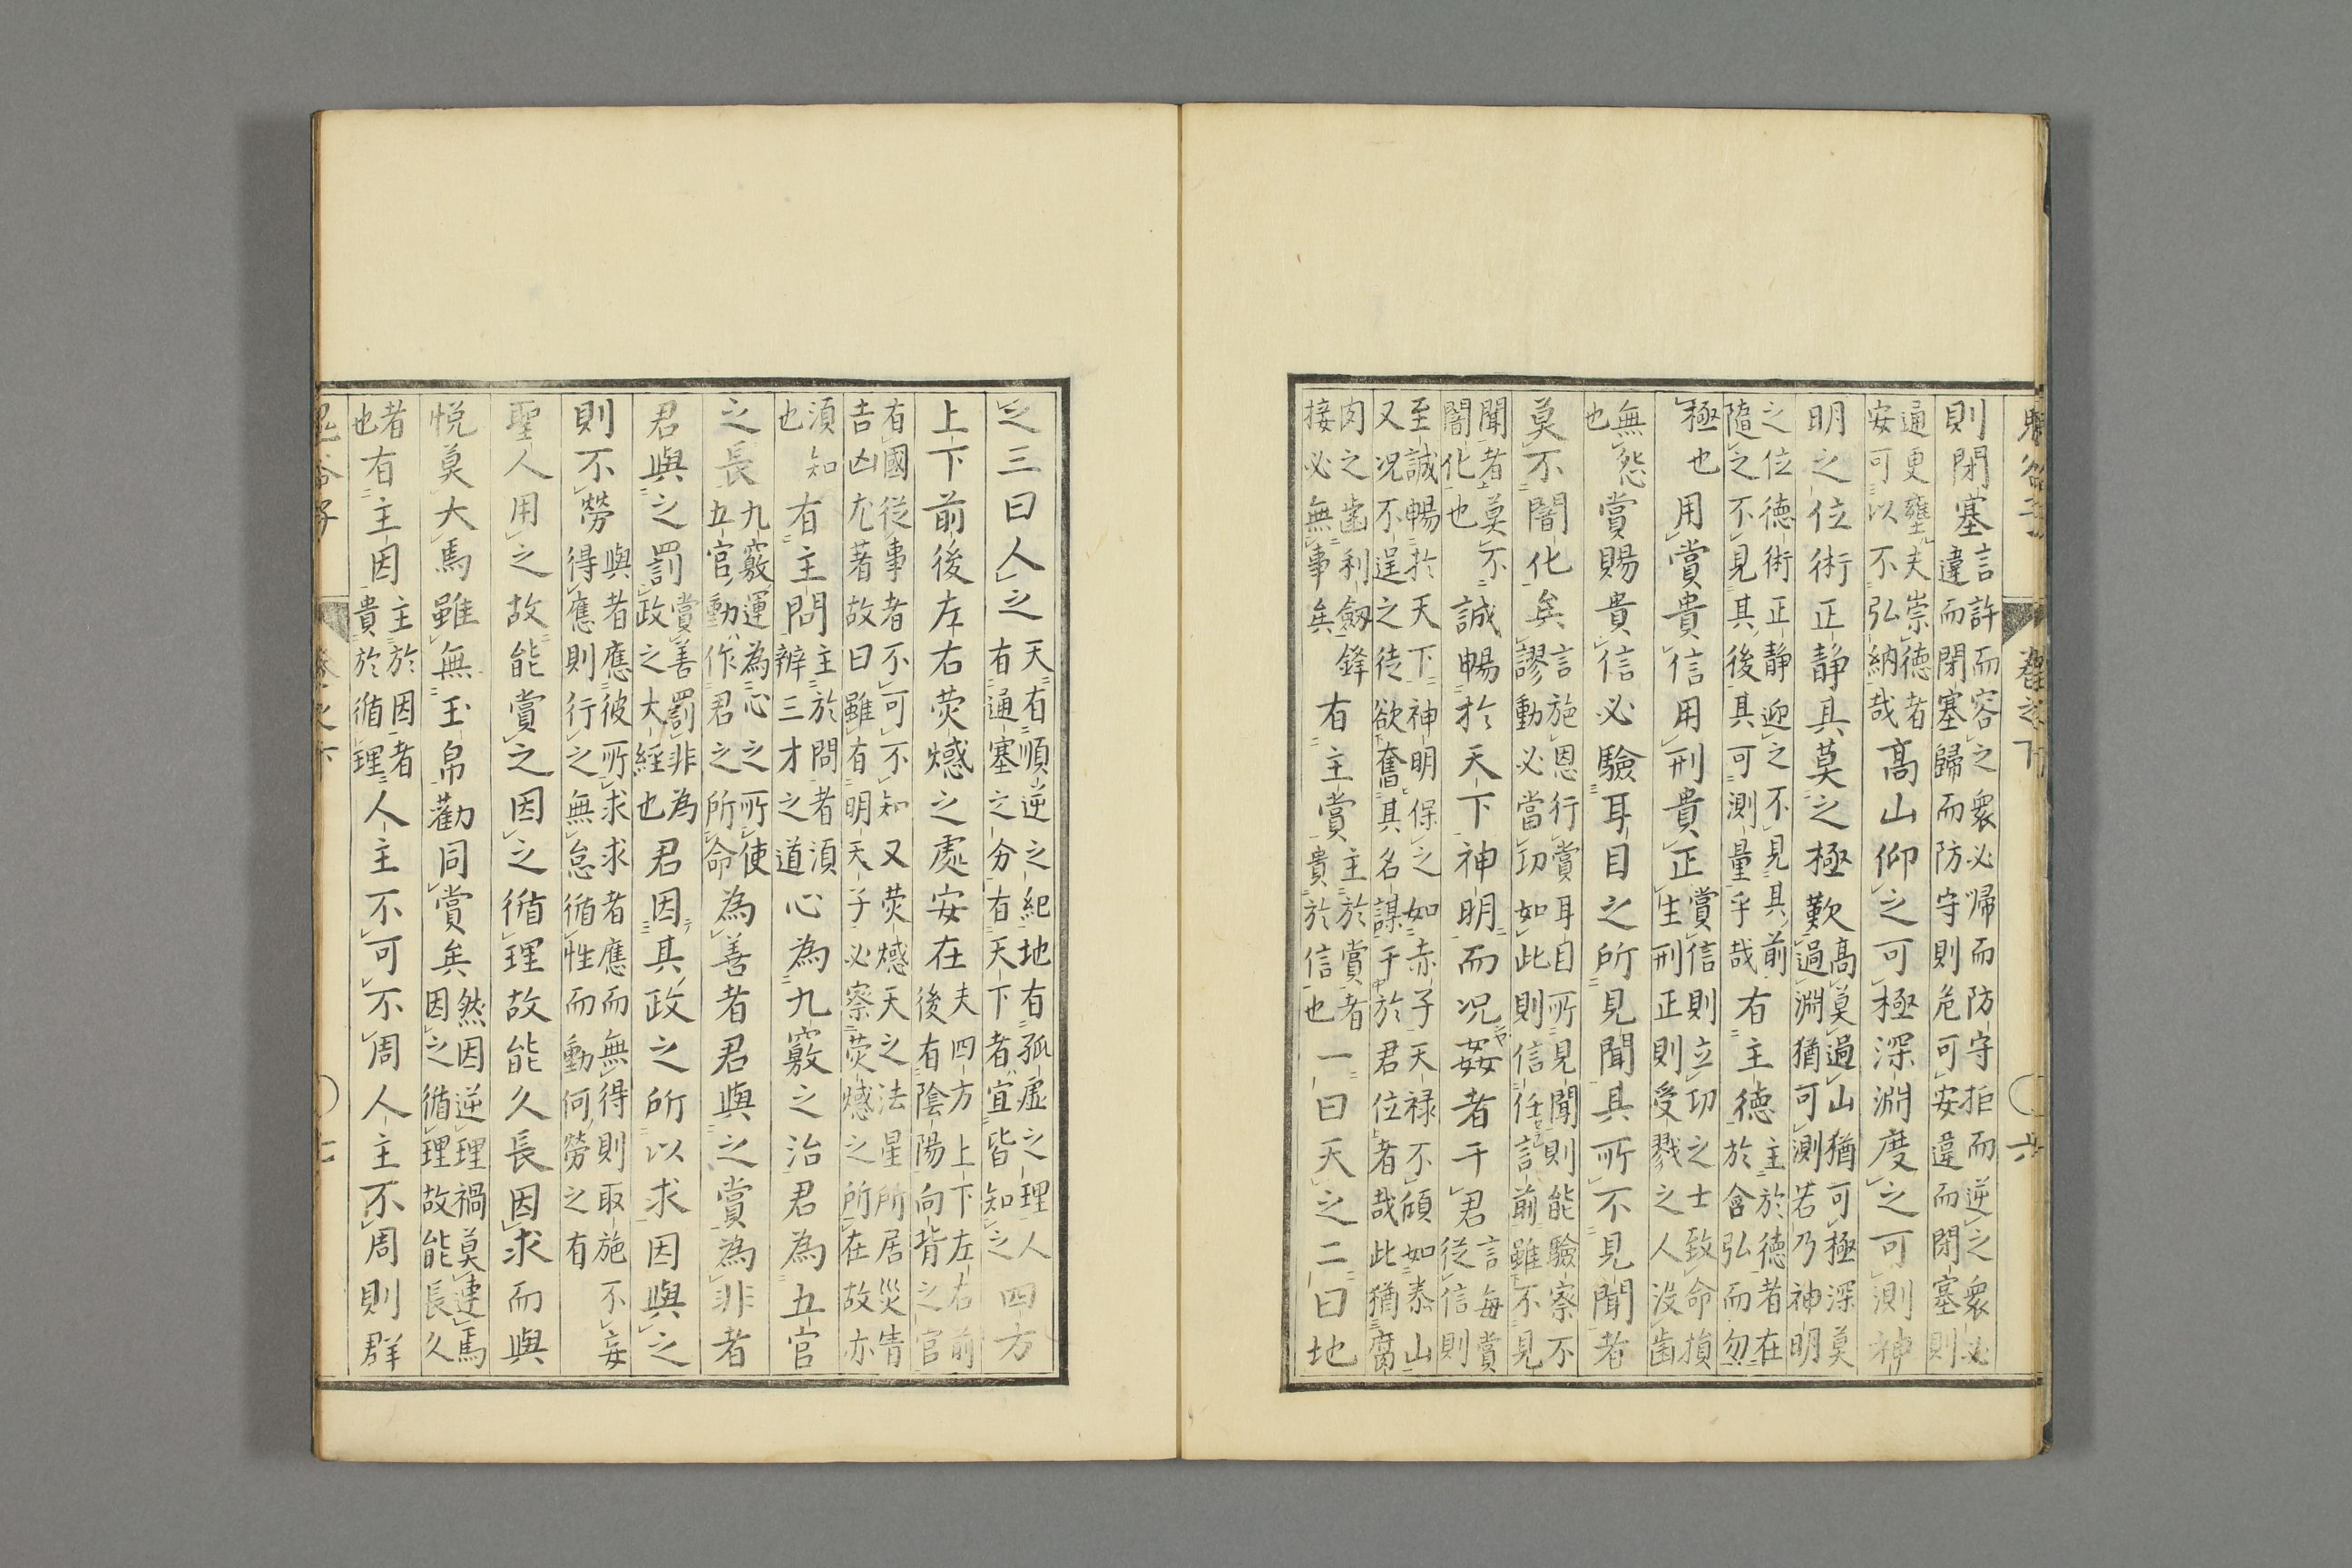 鬼谷子 卷之下 六
則閉塞言許而容之衆必歸而防守拒而逆之衆必違而閉塞歸而防守則危可安違而閉塞則
通更壅夫崇德者安可以不弘納哉高山仰之可極深淵度之可測神
明之位術正静其莫之極歟高莫過山猶可極深莫過淵猶可測若乃神明
之位德術正静迎之不見其前隨之不見其後其可測量乎哉有主德主於德者在於含弘而勿
極也用賞貴信用刑貴正賞信則立功之士致命損生刑正則受戮之人没齒
無怨也賞賜貴信必驗耳目之所見聞其所不見聞者
莫不闇化矣言施恩行賞耳目所見聞則能驗察不謬動必當功如此則信任言前雖不見
聞者莫不闇化也誠暢於天下神明而况姦者干君言每賞從信則
至誠暢於天下神明保之如赤子天禄不傾如泰山又况不逞之徒欲奮其名謀干於君位者哉此猶腐
肉之齒利劔鋒接必無事矣有主賞主於賞者貴於信也一曰天之二曰地
之三曰人之天有順逆之紀地有孤虚之理人有通塞之分有天下者宜皆知之四方
上下前後左右熒憾之處安在夫四方上下左右前後有陰陽向背之官
有國從事者不可不知又熒憾天之法星所居災眚吉凶尤著故曰雖有明天子必察熒憾之所在故亦
須知也有主問主於問者須辨三才之道心為九竅之治君為五官
之長九竅運為心之所使五官動作君之所命為善者君與之賞為非者
君與之罰賞善罰非為政之大經也君因其政之所以求因與之
則不勞與者應彼所求求者應而無得則取施不妄得應則行之無怠循性而動何勞之有
聖人用之故能賞之因之循理故能久長因求而與
悦莫大焉雖無玉帛勸同賞矣然因逆理禍莫速焉因之循理故能長久
者也有主因主於因者貴於循理人主不可不周人主不周則群
鬼谷子 卷之下 七